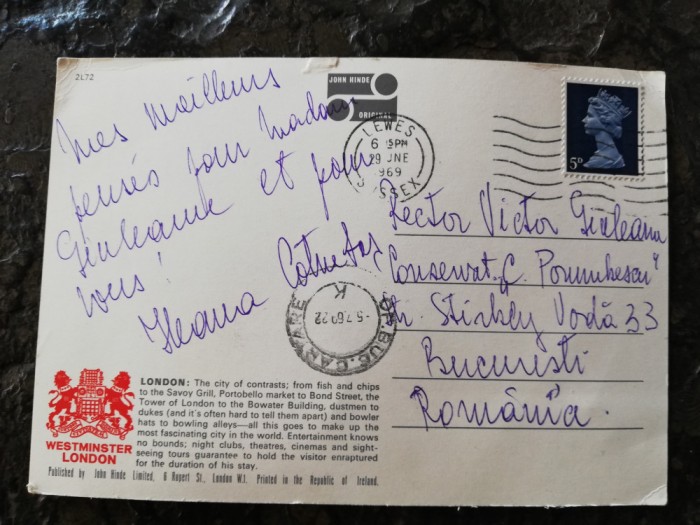 2L72
JOHN HINDE
ORIGINAL
LEWES
6 15PM
29 JNE
1969
SUSSEX
5D
Mes meilleurs
pensés pour Madame
Giuleanu et pour
vous!
Ileana Cotrubaș
Rector Victor Giuleanu
Conservat. "C. Porumbescu"
Str. Stirbey Vodă 33
București
România.
OF. BUC. CARTARE
-5.7.69.22
K
WESTMINSTER
LONDON
LONDON: The city of contrasts; from fish and chips
to the Savoy Grill, Portobello market to Bond Street, the
Tower of London to the Bowater Building, dustmen to
dukes (and it's often hard to tell them apart) and bowler
hats to bowling alleys—all this goes to make up the
most fascinating city in the world. Entertainment knows
no bounds; night clubs, theatres, cinemas and sight-
seeing tours guarantee to hold the visitor enraptured
for the duration of his stay.
Published by John Hinde Limited, 6 Rupert St., London W.1. Printed in the Republic of Ireland.